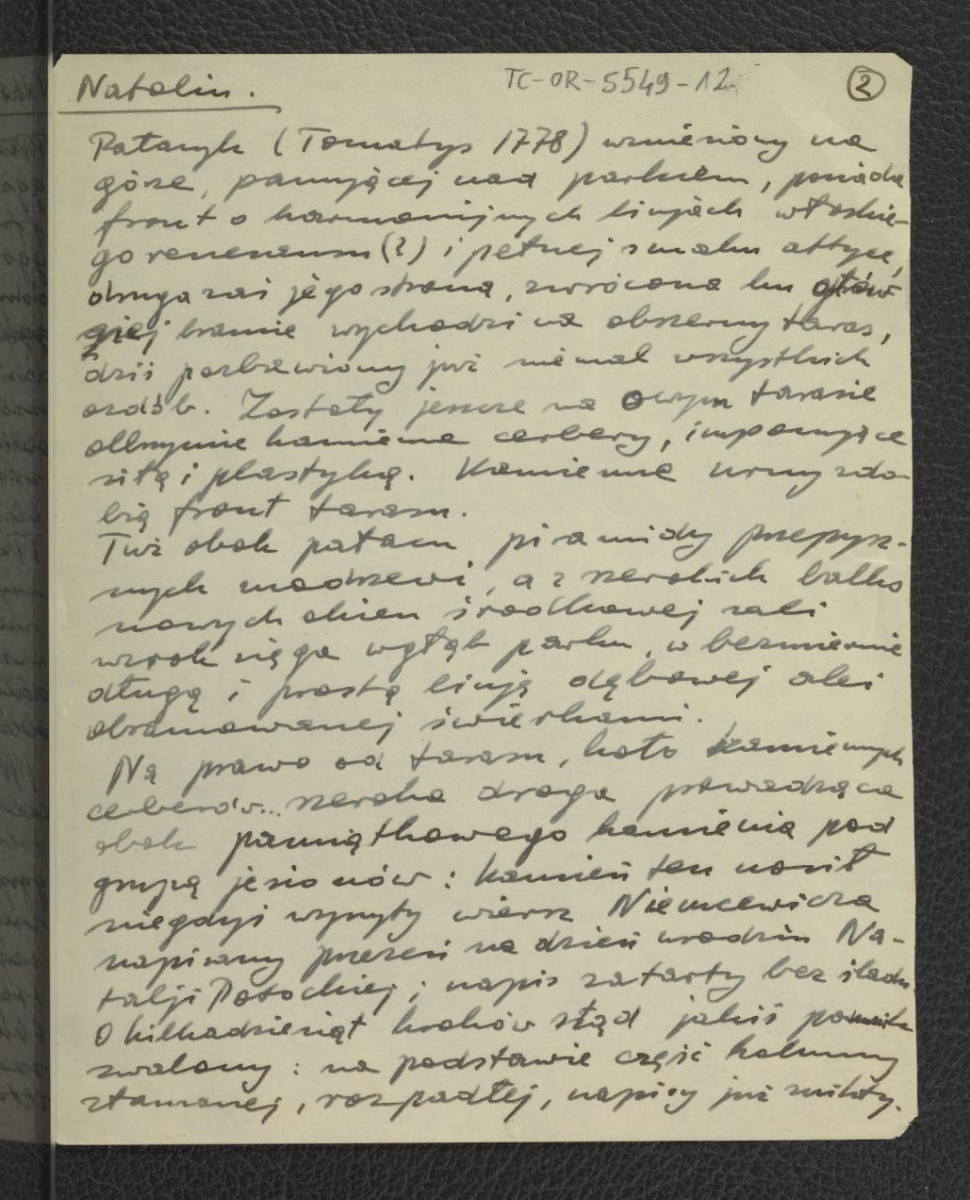 Natolin.
TC-OR-5549-12
2
Pałacyk (Tomatys 1778) wzniesiony na
górze, panującej nad parkiem, posiada
front o harmonijnych linjach włoskie-
go renesansu(?) i pełnej smaku attyce,
druga zaś jego strona, zwrócona ku głów
nej bramie wychodzi na obszerny taras,
dziś pozbawiony już niemal wszystkich
ozdób. Zostały jeszcze na owym tarasie
olbrzymie kamienne cerbery, imponujące
siłą i plastyką. Kamienne urny zdo-
bią front tarasu.
Tuż obok pałacu piramidy przepysz-
nych modrzewi, a z szerokich balko
nowych okien środkowej sali
wzrok sięga wgłąb parku, w bezmiernie
długą i prostą linją dębowej alei
obramowanej świerkami.
Na prawo od tarasu, koło kamiennych
cerberów... szeroka droga prowadząca
obok pamiątkowego kamienia pod
grupą jesionów: kamień ten nosił
niegdyś wyryty wiersz Niemcewicza
napisany przezeń na dzień urodzin Na-
talji Potockiej; napis zatarty bez śladu.
O kilkadziesiąt kroków stąd jakiś pomnik
zwalony: na podstawie część kolumny
złamanej, rozpadłej, napisy już znikły.